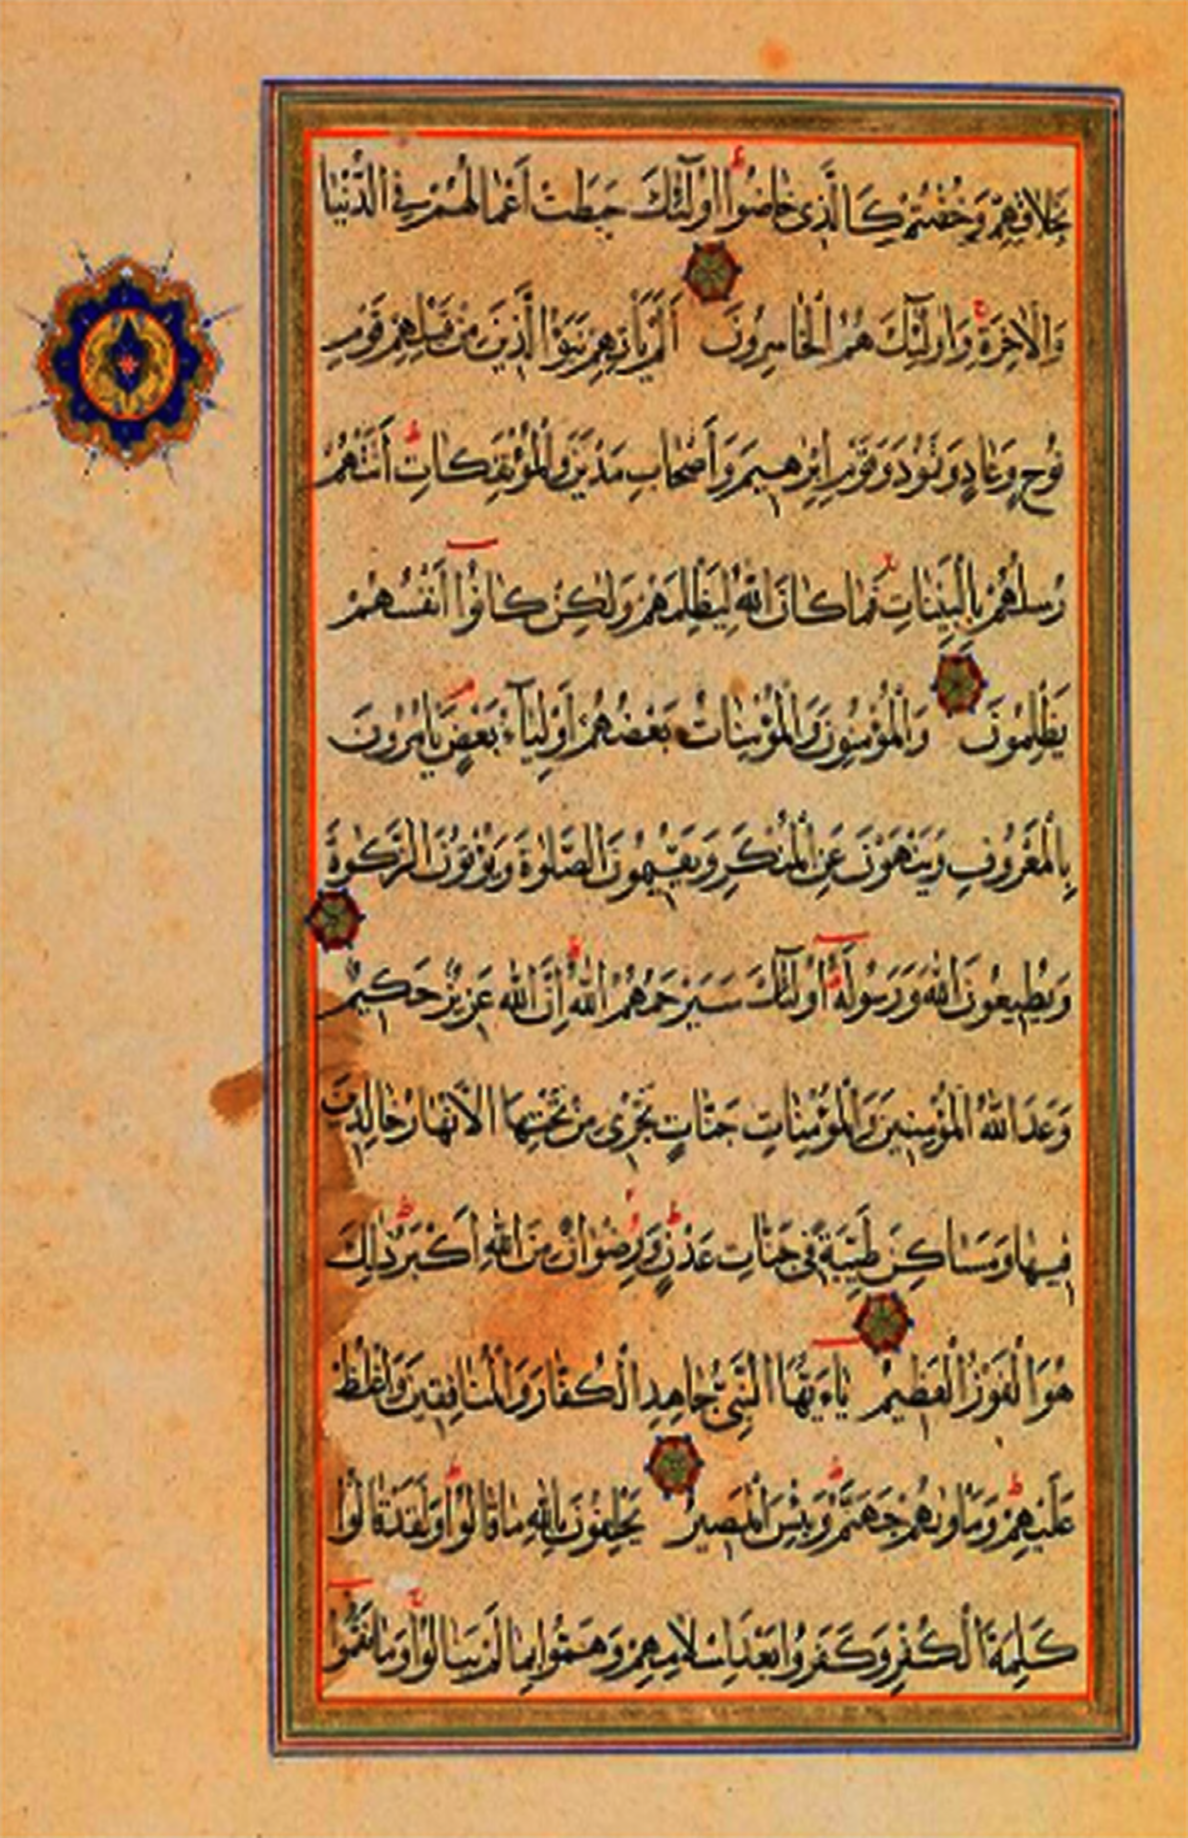 بِخَلَاقِهِمْ وَخُضْتُمْ كَالَّذِى خَاضُوا اُولٰٓئِكَ حَبِطَتْ اَعْمَالُهُمْ فِى الدُّنْيَا
وَالْاٰخِرَةِ وَاُولٰٓئِكَ هُمُ الْخَاسِرُونَ اَلَمْ يَأْتِهِمْ نَبَؤُا الَّذِينَ مِنْ قَبْلِهِمْ قَوْمِ
نُوحٍ وَعَادٍ وَثَمُودَ وَقَوْمِ اِبْرٰهِيمَ وَاَصْحَابِ مَدْيَنَ وَالْمُؤْتَفِكَاتِ اَتَتْهُمْ
رُسُلُهُمْ بِالْبَيِّنَاتِ فَمَا كَانَ اللّٰهُ لِيَظْلِمَهُمْ وَلٰكِنْ كَانُوا اَنْفُسَهُمْ
يَظْلِمُونَ وَالْمُؤْمِنُونَ وَالْمُؤْمِنَاتُ بَعْضُهُمْ اَوْلِيَآءُ بَعْضٍ يَأْمُرُونَ
بِالْمَعْرُوفِ وَيَنْهَوْنَ عَنِ الْمُنْكَرِ وَيُقِيمُونَ الصَّلٰوةَ وَيُؤْتُونَ الزَّكٰوةَ
وَيُطِيعُونَ اللّٰهَ وَرَسُولَهُ اُولٰٓئِكَ سَيَرْحَمُهُمُ اللّٰهُ اِنَّ اللّٰهَ عَزِيزٌ حَكِيمٌ
وَعَدَ اللّٰهُ الْمُؤْمِنِينَ وَالْمُؤْمِنَاتِ جَنَّاتٍ تَجْرِى مِنْ تَحْتِهَا الْاَنْهَارُ خَالِدِينَ
فِيهَا وَمَسَاكِنَ طَيِّبَةً فِى جَنَّاتِ عَدْنٍ وَرِضْوَانٌ مِنَ اللّٰهِ اَكْبَرُ ذٰلِكَ
هُوَ الْفَوْزُ الْعَظِيمُ يَاءَيُّهَا النَّبِىُّ جَاهِدِ الْكُفَّارَ وَالْمُنَافِقِينَ وَاغْلُظْ
عَلَيْهِمْ وَمَأْوٰيهُمْ جَهَنَّمُ وَبِئْسَ الْمَصِيرُ يَحْلِفُونَ بِاللّٰهِ مَا قَالُوا وَلَقَدْ قَالُوا
كَلِمَةَ الْكُفْرِ وَكَفَرُوا بَعْدَ اِسْلَامِهِمْ وَهَمُّوا بِمَا لَمْ يَنَالُوا وَمَا نَقَمُوا